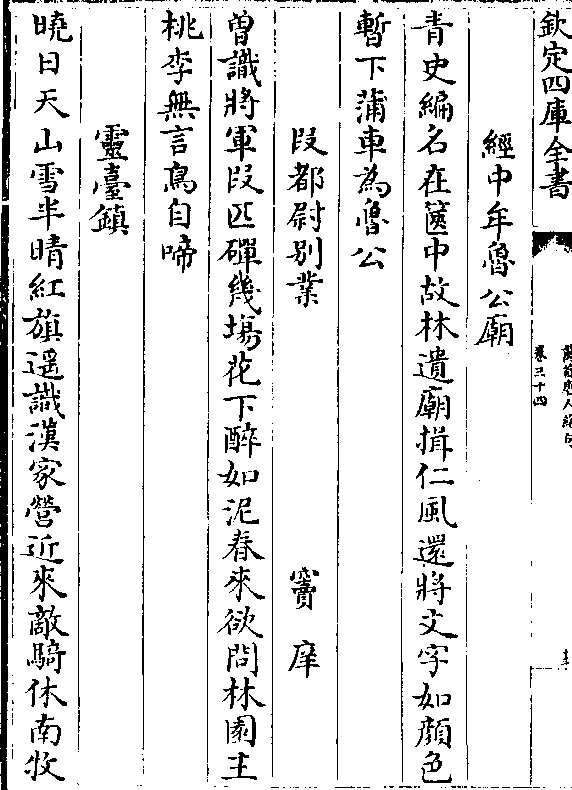 欽定四庫全書
萬首唐人絶句
卷三十四
經中牟魯公廟
青史編名在篋中故林遺廟揖仁風還將文字如顔色
暫下蒲車為魯公
段都尉别業 竇庠
曽識將軍段匹磾幾塲花下醉如泥春來欲問林園主
桃李無言鳥自啼
靈臺鎮
曉日天山雪半晴紅旗遥識漢家營近來敵騎休南牧